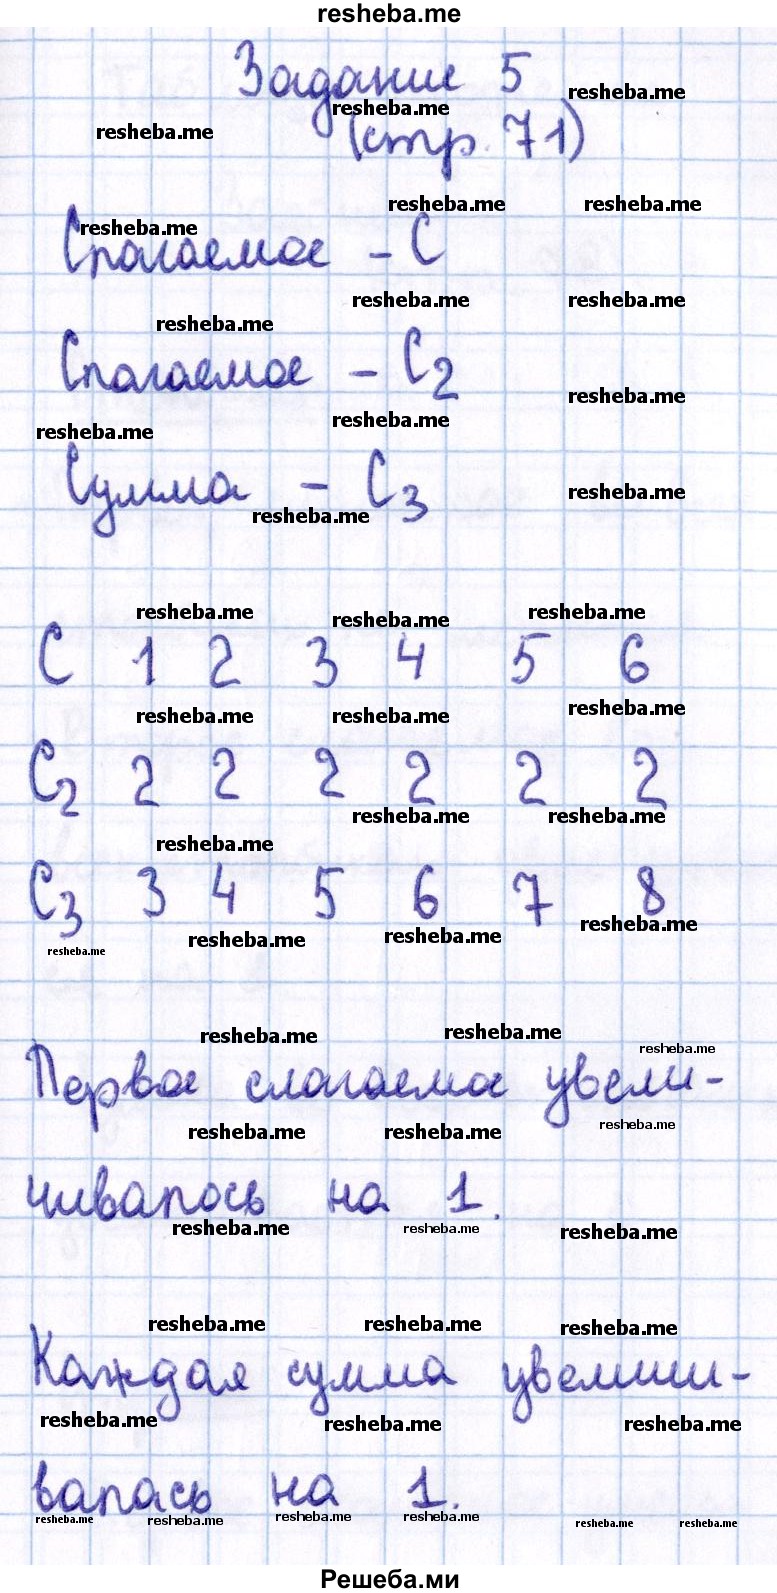 resheba.me
Задание 5
resheba.me
resheba.me
resheba.me
(стр. 71)
resheba.me
resheba.me
resheba.me
Слагаемое - С
resheba.me
resheba.me
resheba.me
Слагаемое - С2
resheba.me
resheba.me
resheba.me
Сумма - С3
resheba.me
resheba.me
resheba.me
resheba.me
resheba.me
С 1 2 3 4 5 6
resheba.me
resheba.me
resheba.me
С2 2 2 2 2 2 2
resheba.me
resheba.me
resheba.me
С3 3 4 5 6 7 8
resheba.me
resheba.me
resheba.me
resheba.me
resheba.me
resheba.me
resheba.me
Первое слагаемое увели-
resheba.me
resheba.me
resheba.me
чивалось на 1.
resheba.me
resheba.me
resheba.me
resheba.me
resheba.me
resheba.me
Каждая сумма увеличи-
resheba.me
resheba.me
resheba.me
валась на 1.
resheba.me
resheba.me
resheba.me
resheba.me
resheba.me
resheba.me
Решеба.ми